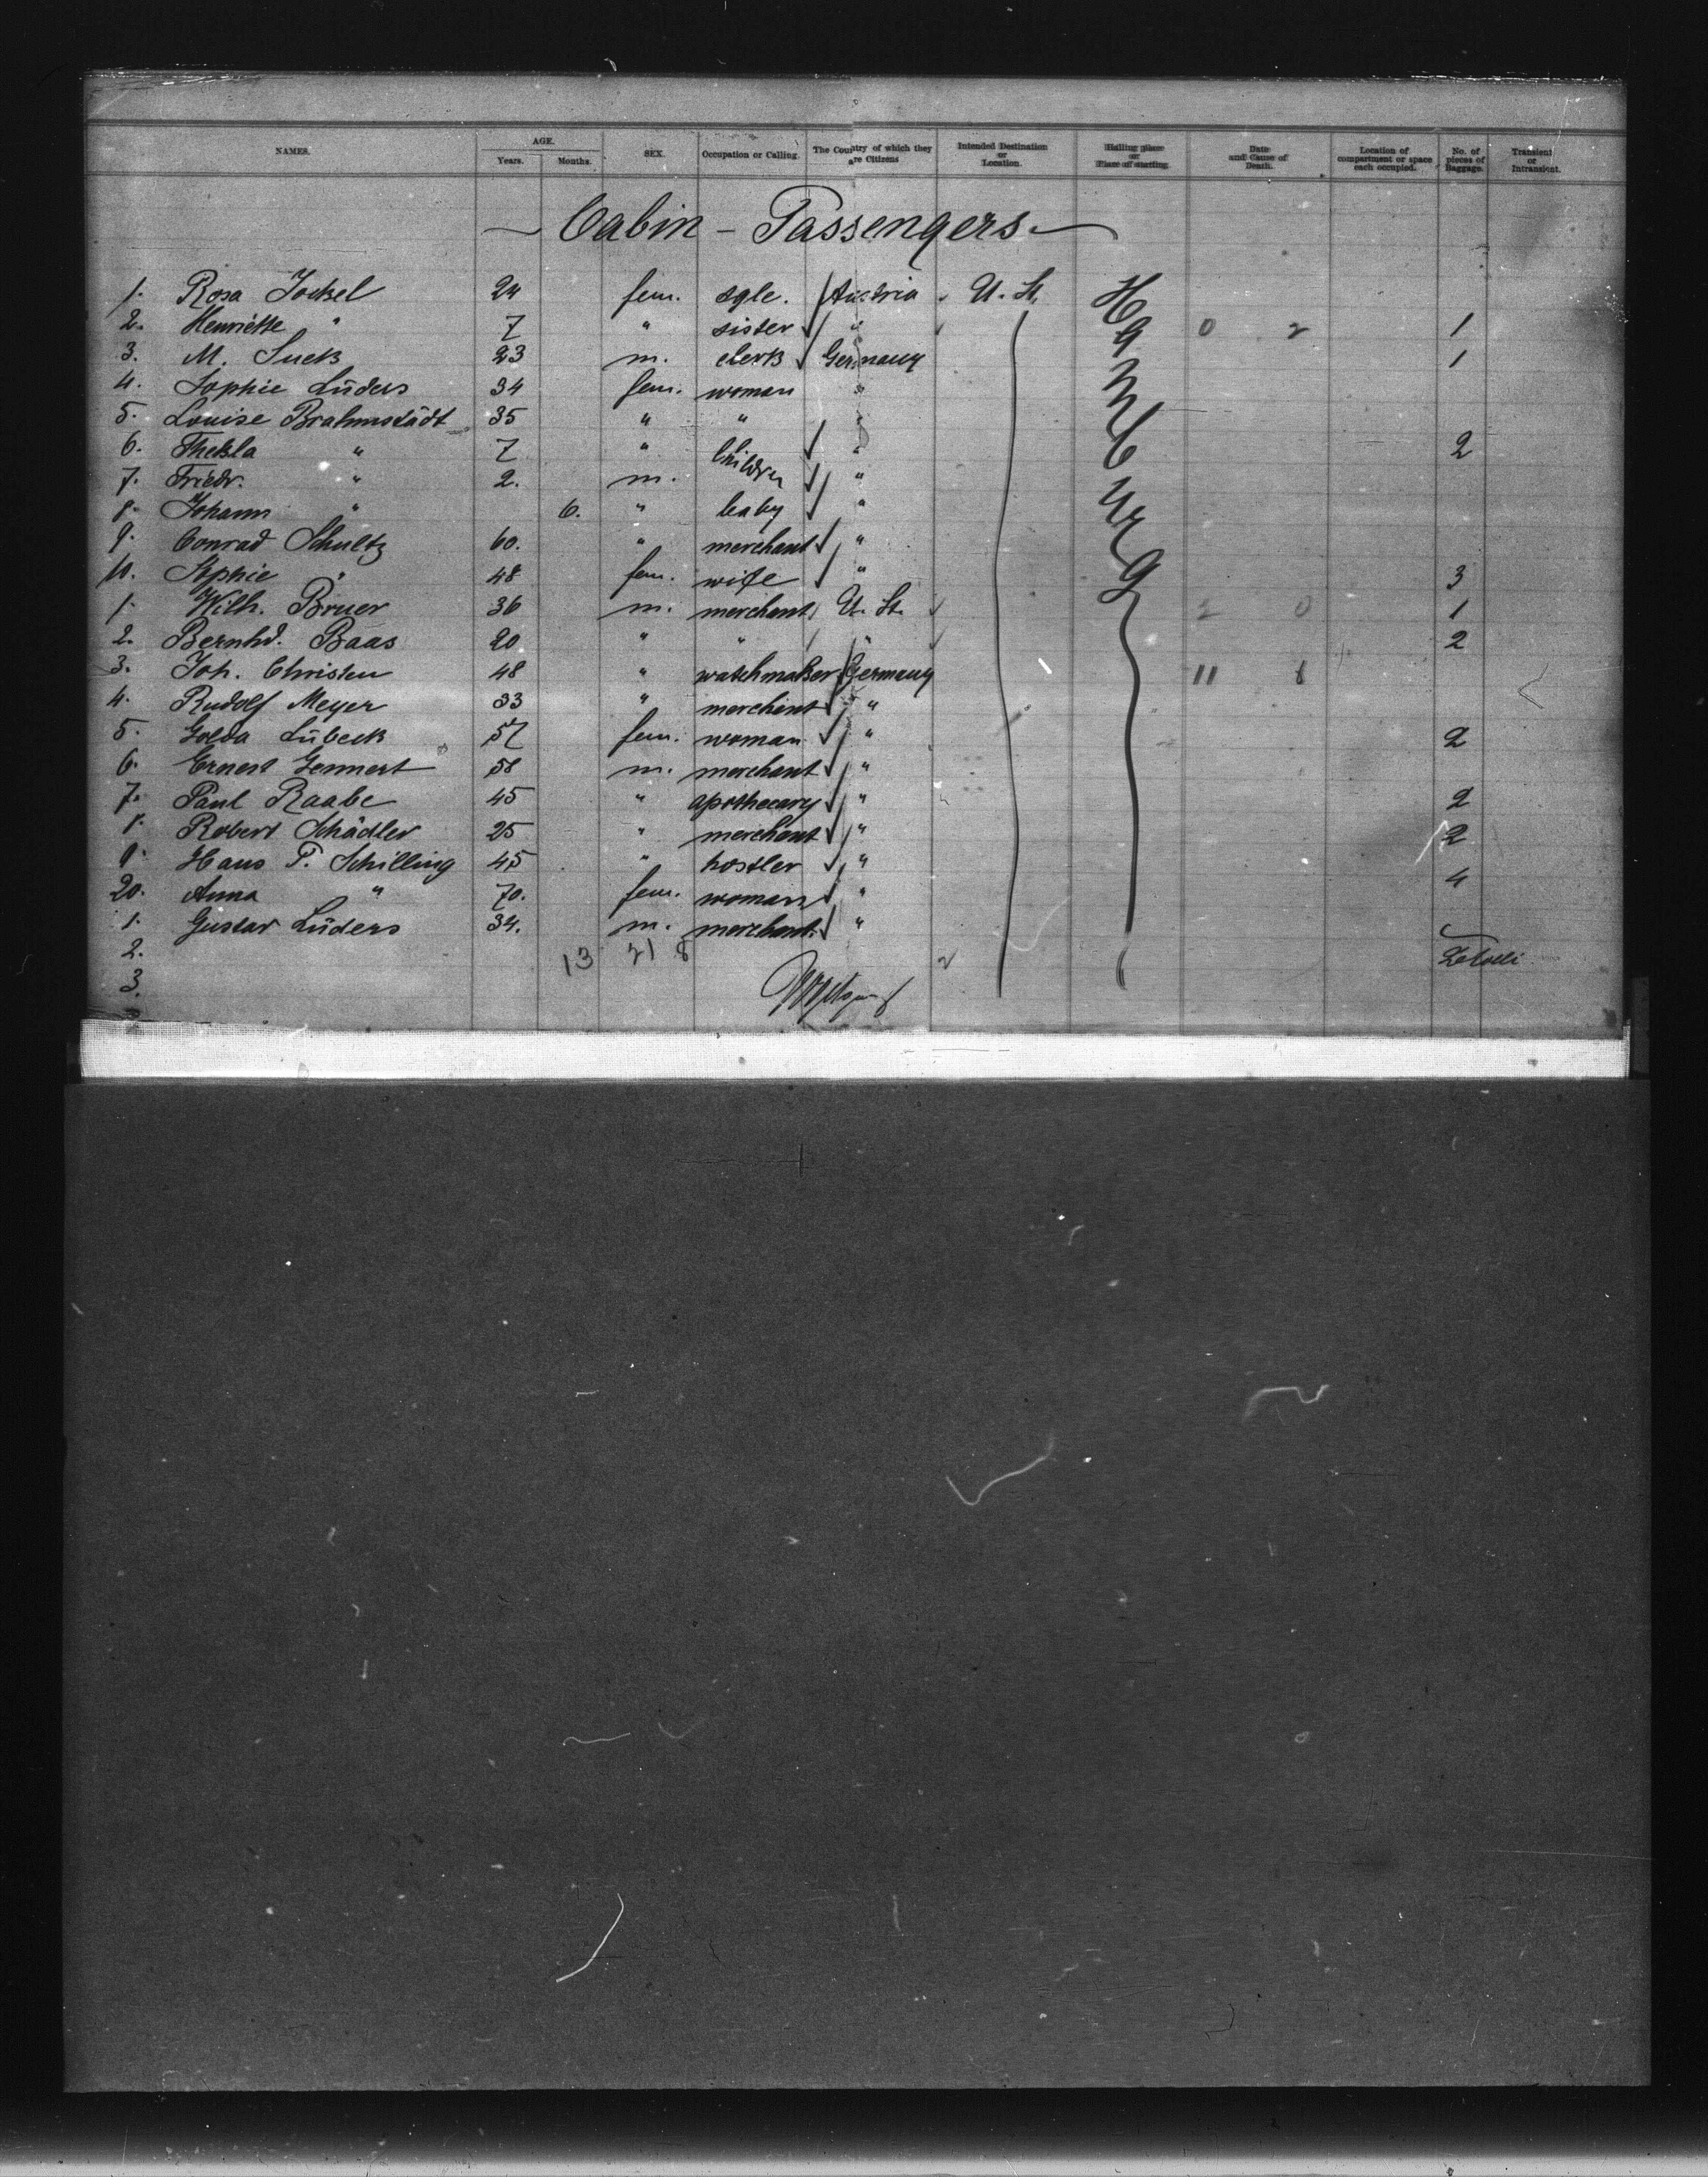 NAMES. AGE. Years. Months. SEX. Occupation or Calling. The Country of which they are Citizens Intended Destination or Location. Hailing place or Place of starting. Date and Cause of Death. Location of compartment or space each occupied. No. of pieces of Baggage. Transient or Intransient.
Cabin - Passengers
1. Rosa Jockel 24 fem. sgle. Austria U. St. Hamburg
2. Henriette " 7 " sister " 0 2 1
3. M. Suck 23 m. clerk Germany 1
4. Sophie Lüders 34 fem. woman "
5. Louise Brahmstädt 35 " " "
6. Thekla " 7 " Children " 2
7. Friedr. " 2. m. "
8. Johann " 6. " baby "
9. Conrad Schultz 60. " merchant "
10. Sophie " 48 fem. wife " 3
1. Wilh. Bruer 36 m. merchant U. St. 2 0 1
2. Bernhd. Baas 20 " " " 2
3. Joh. Christen 48 " watchmaker Germany 11 8
4. Rudolf Meyer 33 " merchant "
5. Golda Lübeck 57 fem. woman " 2
6. Ernest Gennert 58 m. merchant "
7. Paul Raabe 45 " apothecary " 2
8. Robert Schädler 25 " merchant " 2
9. Hans P. Schilling 45 " hostler " 4
20. Anna " 70. fem. woman "
1. Gustav Lüders 34. m. merchant "
2. 13 21 8
3.